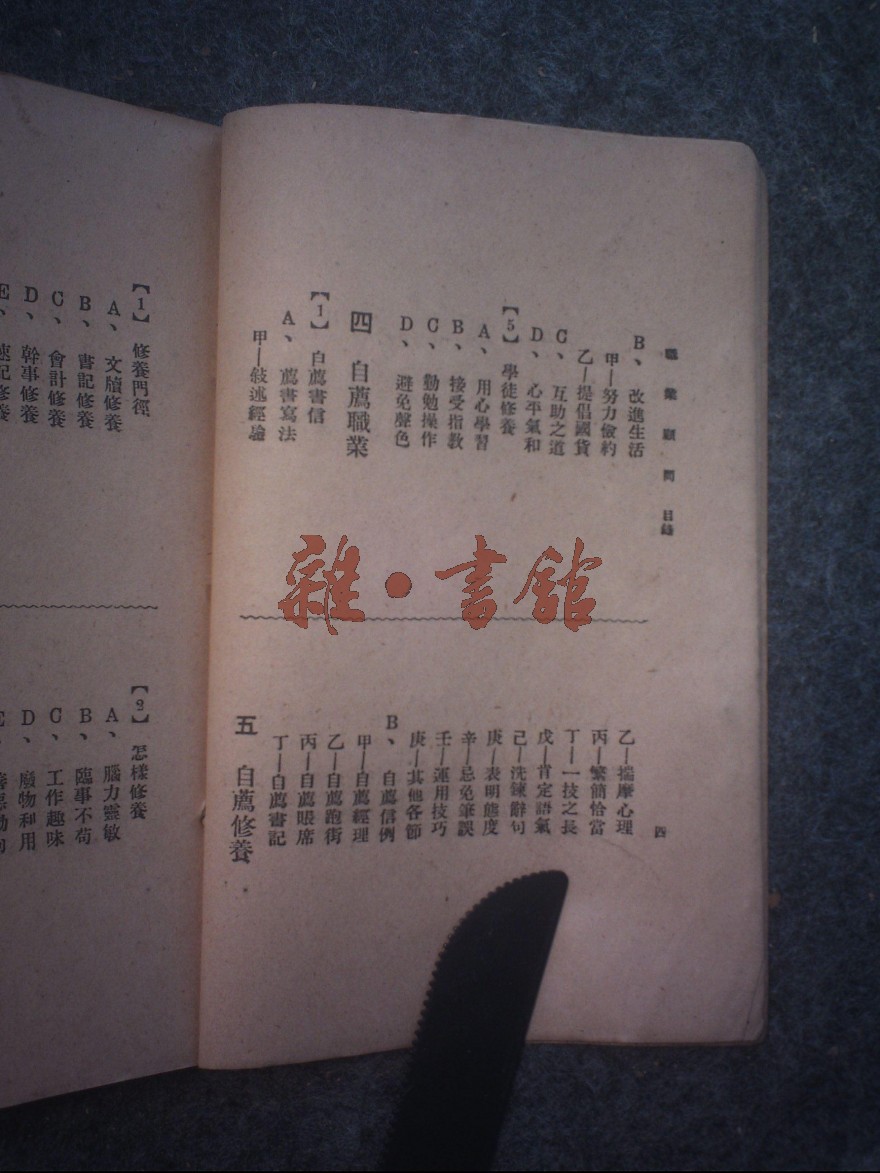 職業顧問 目錄
四
B、改進生活
甲—努力儉約
乙—提倡國貨
C、互助之道
D、心平氣和
【5】學徒修養
A、用心學習
B、接受指教
C、勤勉操作
D、避免聲色
四 自薦職業
【1】自薦書信
A、薦書寫法
甲—敍述經驗
乙—揣摩心理
丙—繁簡恰當
丁—一技之長
戊—肯定語氣
己—洗鍊辭句
庚—表明態度
辛—忌免筆誤
壬—運用技巧
庚—其他各節
B、自薦信例
甲—自薦經理
乙—自薦跑街
丙—自薦賬席
丁—自薦書記
五 自薦修養
【1】修養門徑
A、文牘修養
B、書記修養
C、會計修養
D、幹事修養
E、速記修養
【2】怎樣修養
A、腦力靈敏
B、臨事不苟
C、工作趣味
D、廢物利用
雜·書館